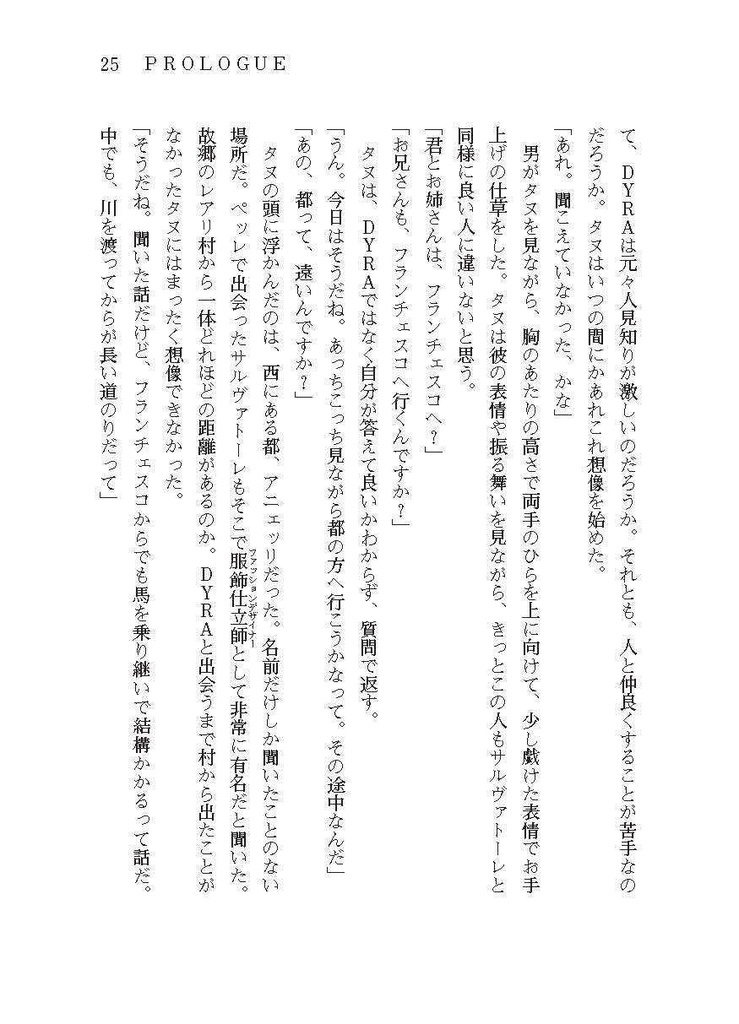 25　PROLOGUE
て、DYRAは元々人見知りが激しいのだろうか。それとも、人と仲良くすることが苦手なの
だろうか。タヌはいつの間にかあれこれ想像を始めた。
「あれ。聞こえていなかった、かな」
　男がタヌを見ながら、胸のあたりの高さで両手のひらを上に向けて、少し戯けた表情でお手
上げの仕草をした。タヌは彼の表情や振る舞いを見ながら、きっとこの人もサルヴァトーレと
同様に良い人に違いないと思う。
「君とお姉さんは、フランチェスコへ？」
「お兄さんも、フランチェスコへ行くんですか？」
　タヌは、DYRAではなく自分が答えて良いかわからず、質問で返す。
「うん。今日はそうだね。あっちこっち見ながら都の方へ行こうかなって。その途中なんだ」
「あの、都って、遠いんですか？」
　タヌの頭に浮かんだのは、西にある都、アニェッリだった。名前だけしか聞いたことのない
場所だ。ペッレで出会ったサルヴァトーレもそこで服飾仕立師ファッションデザイナーとして非常に有名だと聞いた。
故郷のレアリ村から一体どれほどの距離があるのか。DYRAと出会うまで村から出たことが
なかったタヌにはまったく想像できなかった。
「そうだね。聞いた話だけど、フランチェスコからでも馬を乗り継いで結構かかるって話だ。
中でも、川を渡ってからが長い道のりだって」